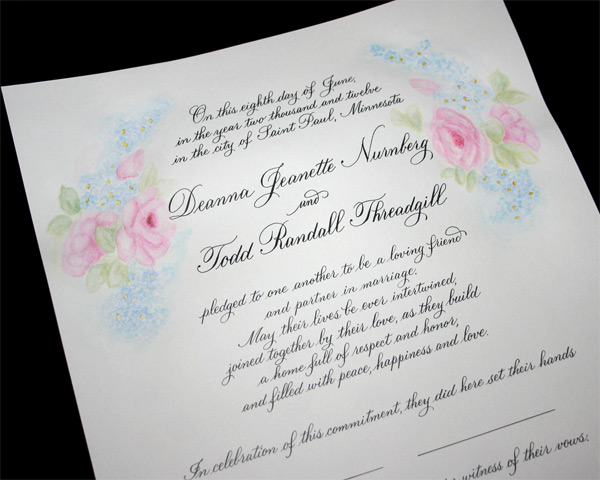 On this eighth day of June,
in the year two thousand and twelve
in the city of Saint Paul, Minnesota
Deanna Jeanette Nurnberg
and
Todd Randall Threadgill
pledged to one another to be a loving friend
and partner in marriage.
May their lives be ever intertwined,
joined together by their love, as they build
a home full of respect and honor,
and filled with peace, happiness and love.
In celebration of this commitment, they did here set their hands
witness of their vows.